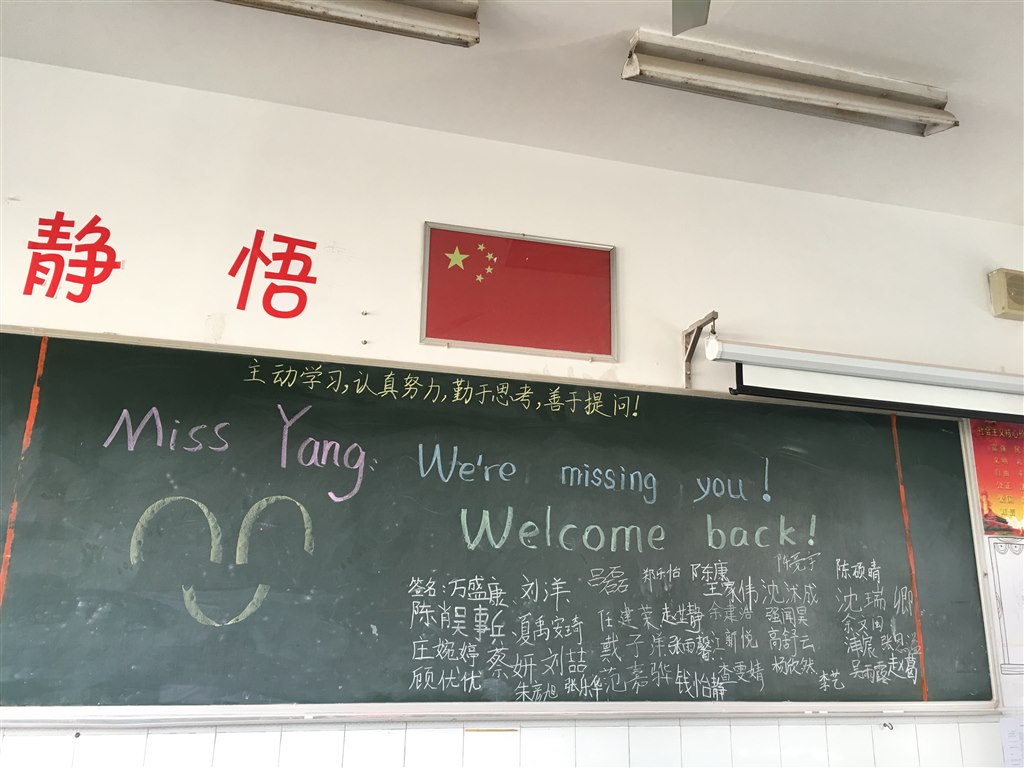 静 悟
主动学习,认真努力,勤于思考,善于提问!
Miss Yang
We're missing you!
Welcome back!
签名:万盛康 刘洋 吕磊 郑乐怡 陈康 王家伟 沈沭成 陈硕晴
陈肖吴事兵 夏禹安琦 任建芙 赵世静 余建浩 强闻昊 沈瑞卿
庄婉婷 蔡妍 刘喆 戴子洋 张雨馨 江新悦 高舒云
顾优优 朱彦旭 张乐华 范嘉骅 钱怡静 查雯婧 杨欣然 李艺 吴雨露 赵葛
社会主义核心价